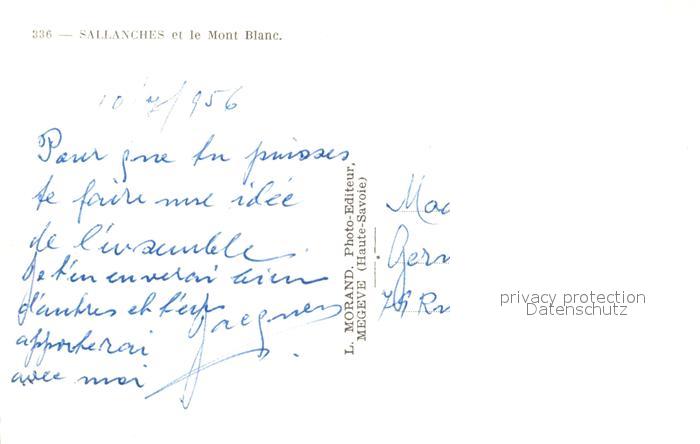 336 — SALLANCHES et le Mont Blanc.
1956
Pour que tu puisses
te faire une idée
de l'ensemble.
Je t'en enverai bien
d'autres et t'en
apporterai
avec moi
Jacques
L. MORAND, Photo-Editeur,
MEGEVE (Haute-Savoie)
Mad
Germ
privacy protection
Datenschutz